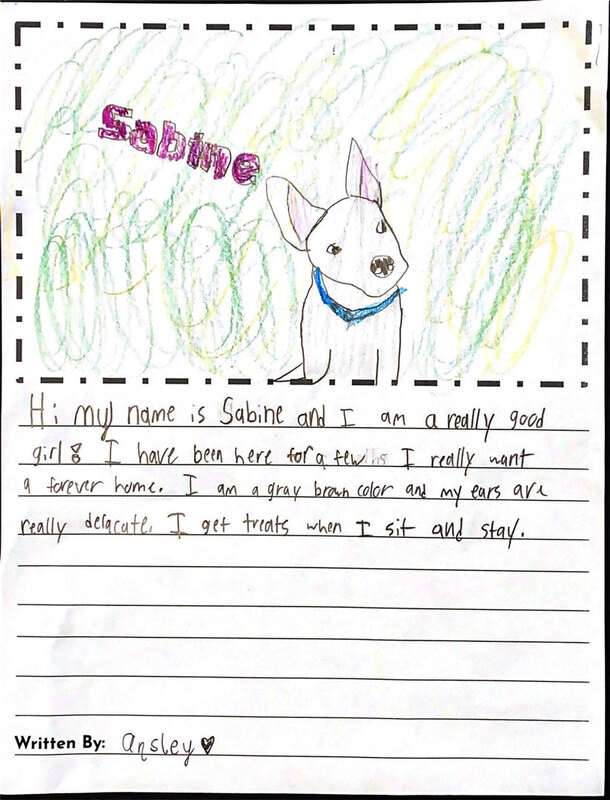 Sabine
Hi my name is Sabine and I am a really good
girl! I have been here for a few I really want
a forever home. I am a gray brown color and my ears are
really delacate. I get treats when I sit and stay.
Written By: Ansley ♥